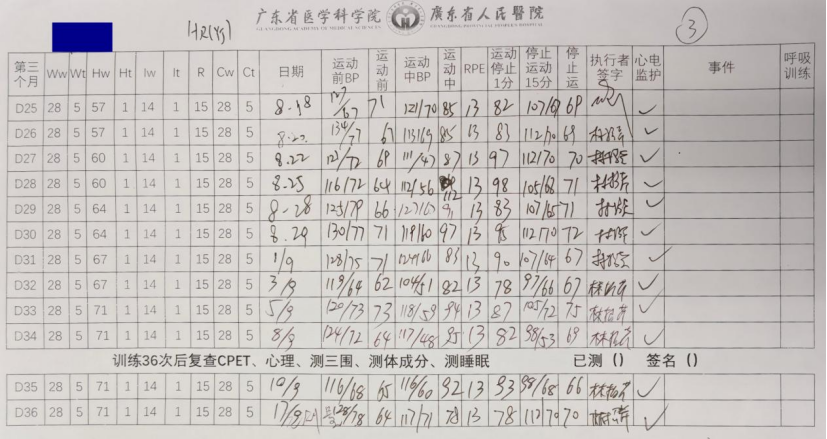 广东省医学科学院 廣東省人民醫院
GUANGDONG ACADEMY OF MEDICAL SCIENCES GUANGDONG PROVINCIAL PEOPLE'S HOSPITAL
③
第三个月 Ww Wt Hw Ht Iw It R Cw Ct 日期 运动前BP 运动前 运动中BP 运动中 RPE 运动停止1分 停止运动15分 停止运 执行者签字 心电监护 事件 呼吸训练
D25 28 5 57 1 14 1 15 28 5 8.18 127/67 71 121/70 85 13 82 107/69 69 ✓
D26 28 5 57 1 14 1 15 28 5 134/77 67 113/69 85 13 83 112/70 69 ✓
D27 28 5 60 1 14 1 15 28 5 8.22 123/72 69 111/47 87 13 97 112/70 70 ✓
D28 28 5 60 1 14 1 15 28 5 8.25 116/72 64 112/56 112 13 98 105/68 71 ✓
D29 28 5 64 1 14 1 15 28 5 8-28 125/79 66 127/67 91 13 83 107/65 71 ✓
D30 28 5 64 1 14 1 15 28 5 8.29 130/77 71 119/60 97 13 95 112/70 72 ✓
D31 28 5 67 1 14 1 15 28 5 1/9 128/75 71 124/66 83 13 90 107/64 67 ✓
D32 28 5 67 1 14 1 15 28 5 3/9 119/64 62 104/51 82 13 78 97/66 67 ✓
D33 28 5 71 1 14 1 15 28 5 5/9 120/73 73 118/59 94 13 87 105/72 75 ✓
D34 28 5 71 1 14 1 15 28 5 8/9 124/72 64 117/48 95 13 82 98/53 69 ✓
训练36次后复查CPET、心理、测三围、测体成分、测睡眠 已测（） 签名（）
D35 28 5 71 1 14 1 15 28 5 10/9 116/68 65 116/60 92 13 93 98/68 66 ✓
D36 28 5 71 1 14 1 15 28 5 17/9 128/78 64 117/71 78 13 78 112/70 70 ✓